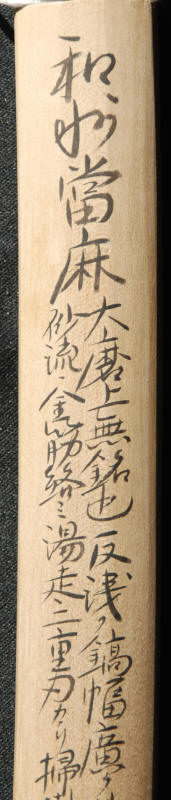 和州當麻
大磨上無銘也 反浅ク鎬幅廣ク
砂流ミ金筋絡ミ湯走二重刃カリ掃